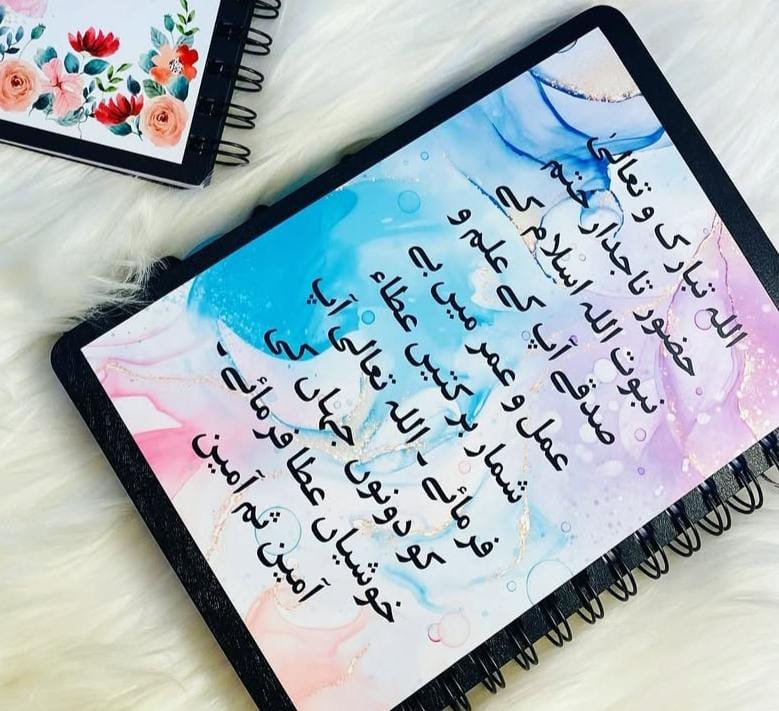 اللہ تبارک و تعالیٰ
حضور تاجدار ختم
نبوت اللہ اسلام کے
صدقے آپ کے علم و
عمل و عمر میں بے
شمار برکتیں عطاء
فرمائے ۔ اللہ تعالی آپ
کو دونوں جہاں کی
خوشیاں عطا فرمائے۔
آمین ثم آمین